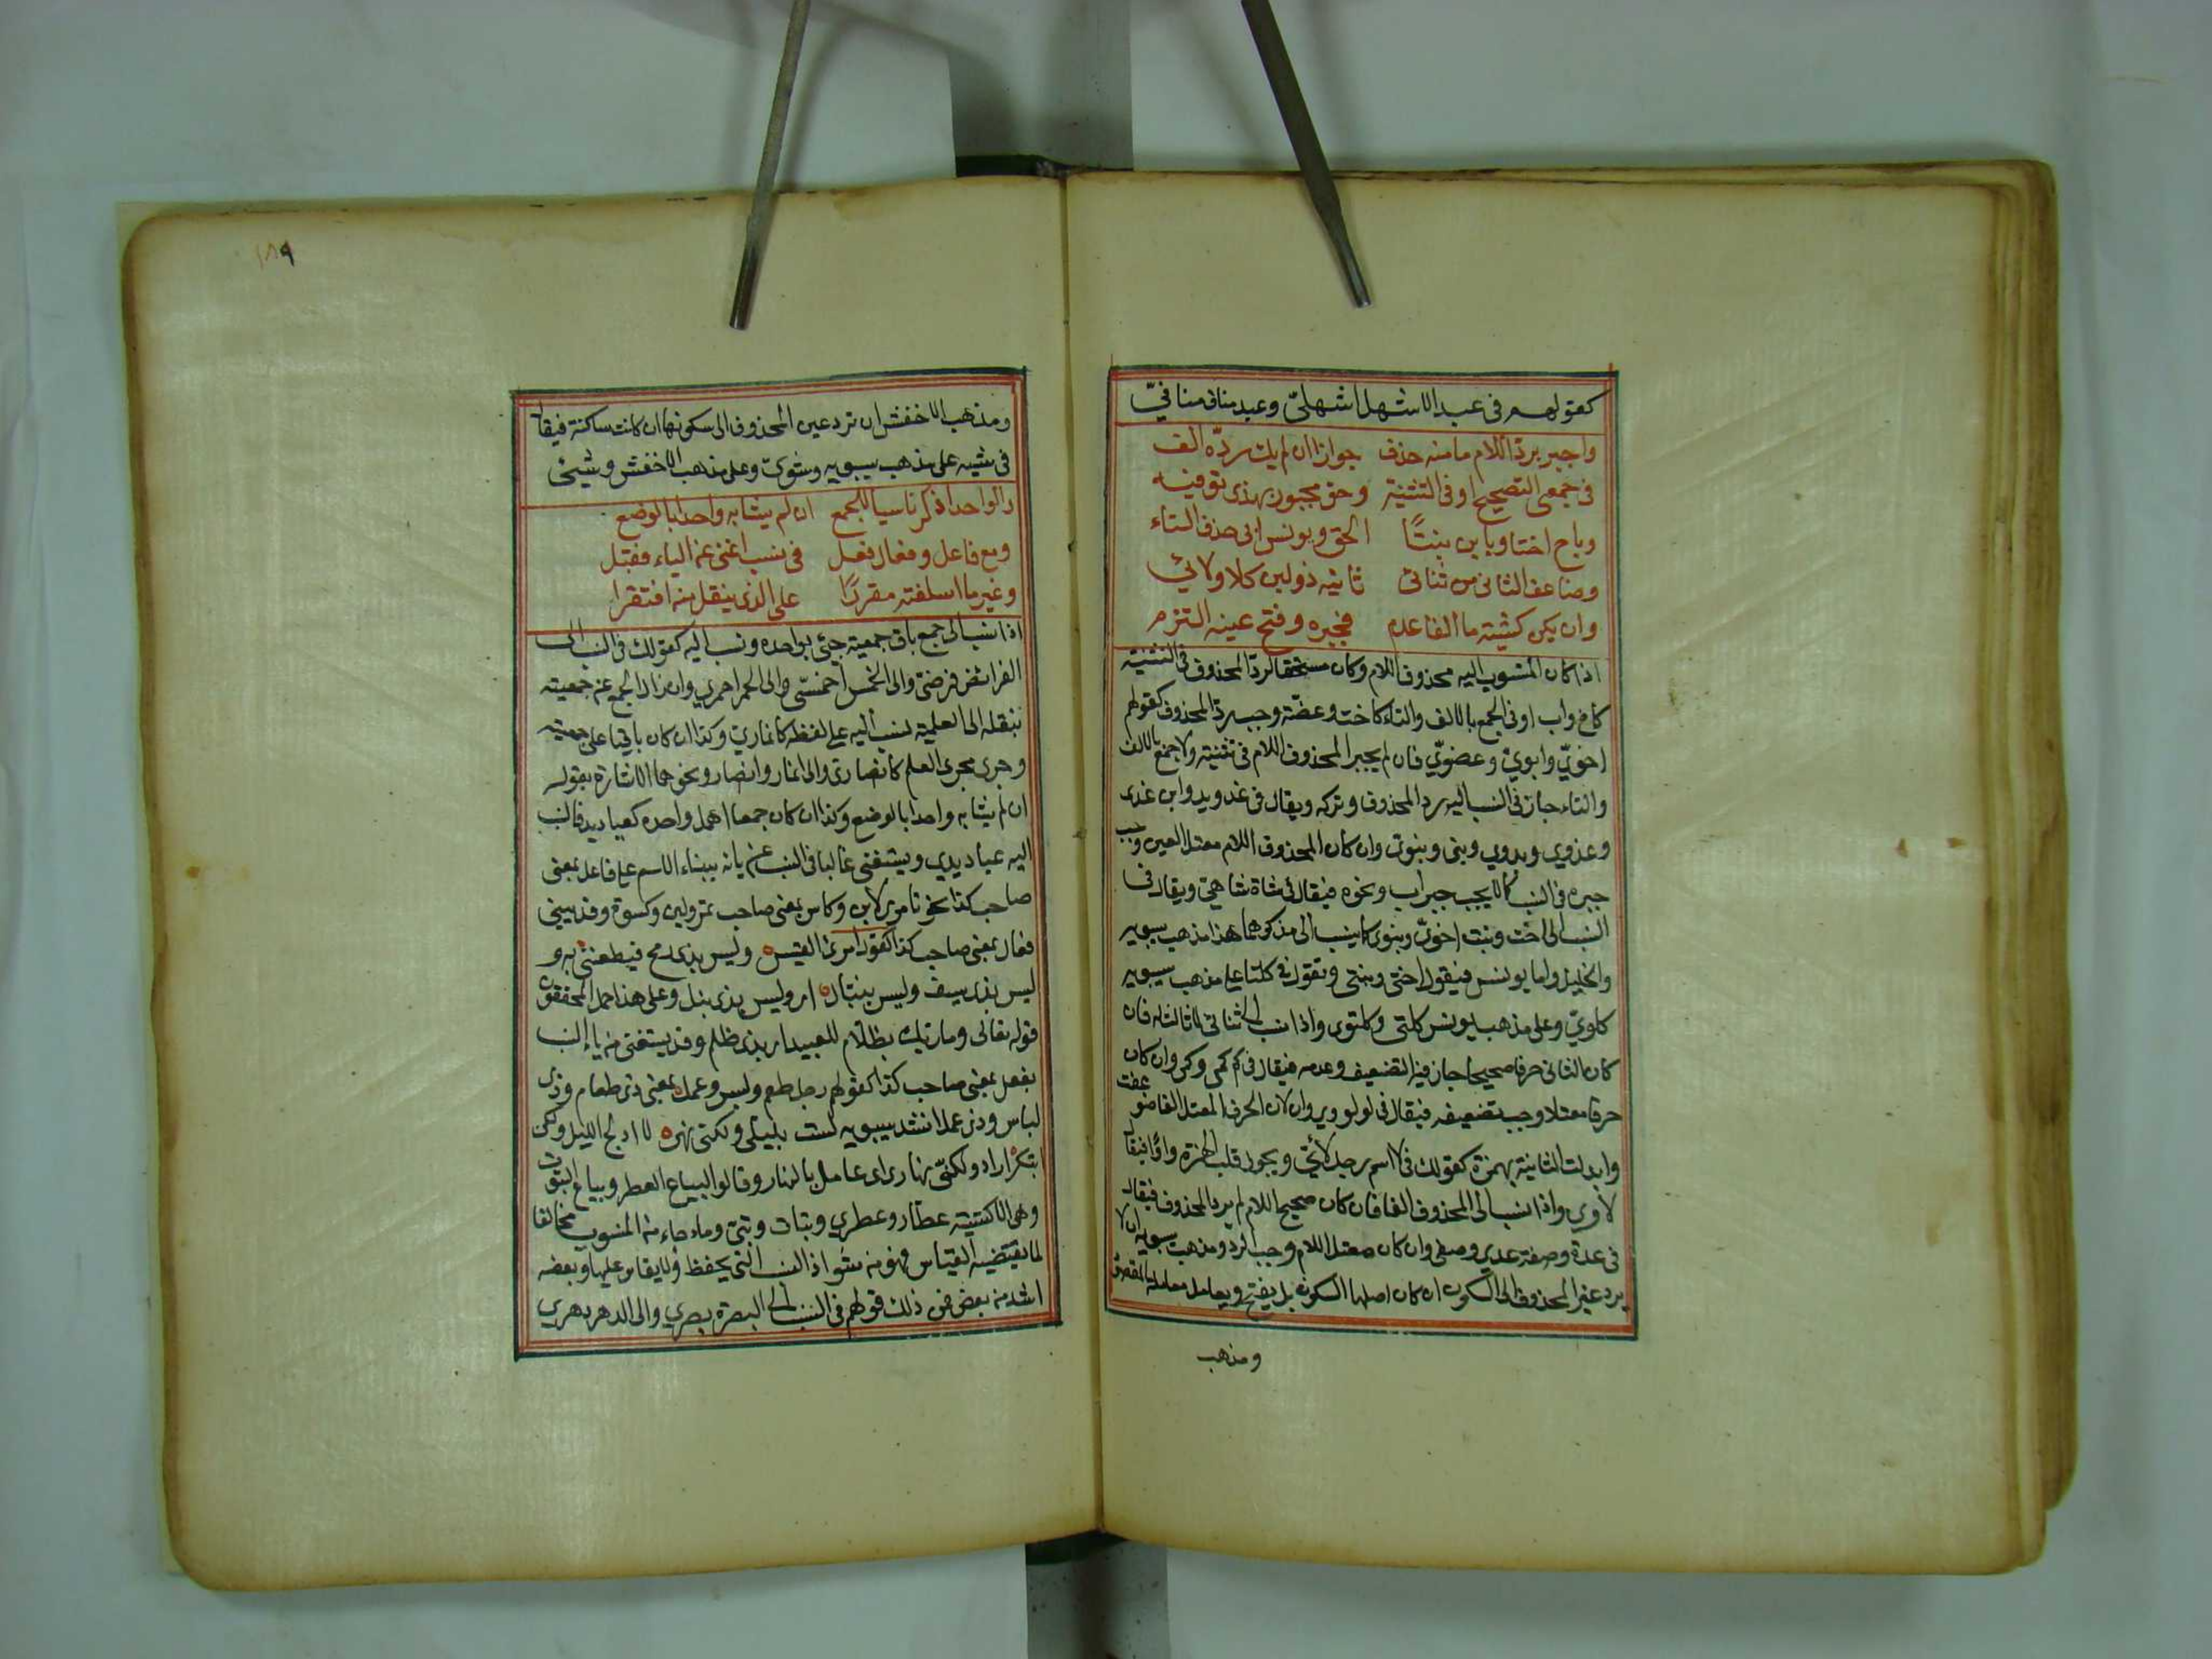 كقولهم في عبد الاشهل اشهليّ وعبد مناف منافيّ
واجبر بردّ اللام ما منه حذف جوازا ان لم يك ردّه الف
في جمعي التصحيح او في التثنية وحق مجبور بهذي توفيه
وباخ اختا وبابن بنتًا الحق ويونس ابى حذف التاء
وضاعف الثاني من ثنائي ثانيه ذو لين كلا ولائي
وان يكن كشيته ما الفا عدم فجبره وفتح عينه التزم
اذا كان المنسوب اليه محذوف اللام وكان مستحقا لردّ المحذوف في التثنية
كاخ واب او في الجمع بالالف والتاء كاخت وعضة وجب ردّ المحذوف كقولهم
اخويّ وابويّ وعضويّ فان لم يجبر المحذوف اللام في تثنية ولا جمع بالالف
والتاء جاز في النسب اليه رد المحذوف وتركه ويقال في غد ويد وابن غدى
وغدوي ويدوي وبنى وبنوى وان كان المحذوف اللام معتل العين وجب
جبره في النسب كما يجب جبر اب ونحوه فيقال في شاة شاهي ويقال في
النسب الى اخت وبنت اخويّ وبنوى كما ينسب الى مذكرهما هذا مذهب سيبويه
والخليل واما يونس فيقول اختى وبنتى وتقول في كلتا على مذهب سيبويه
كلويّ وعلى مذهب يونس كلتى وكلتوى واذا نسب الى ثنائي لا ثالث له فان
كان الثاني حرفا صحيحا جاز فيه التضعيف وعدمه فيقال في كم كمى وكمى وان كان
حرفا معتلا وجب تضعيفه فيقال في لو لووي وان كان الحرف المعتل الفا ضوعفت
وابدلت الثانية بهمزة كقولك في لا اسم رجل لائي ويجوز قلب الهمزة واوًا فيقال
لاوي واذا نسب الى المحذوف الفا فان كان صحيح اللام لم يرد المحذوف فيقال
في عدة وصفة عدي وصفى وان كان معتل اللام وجب الرد ومذهب سيبويه ان لا
يرد عين المحذوف الى السكون ان كان اصلها السكون بل يفتح ويعامل معاملة المقصور
ومذهب
١٨٩
ومذهب الاخفش ان ترد عين المحذوف الى سكونها ان كانت ساكنة فيقال
في شيه على مذهب سيبويه وشوىّ وعلى مذهب الاخفش وشيىّ
والواحد اذكر ناسبا للجمع ان لم يشابه واحدا بالوضع
ومع فاعل وفعال فعل في نسب اغنى عن الياء فقبل
وغير ما اسلفته مقررًا على الذي ينقل منه اقتصرا
اذا نسب الى جمع باق جمعيته جئ بواحده ونسب اليه كقولك في النسب الى
الفرائض فرضىّ والى الخمس احمسّى والى الحمر احمري وان زال الجمع عن جمعيته
بنقله الى العلمية نسب اليه على لفظه كانماريّ وكذا ان كان باقيا على جمعيته
وجرى مجرى العلم كانصارى والى انمار وانصار ونحوهما الاشارة بقوله
ان لم يشابه واحدا بالوضع وكذا ان كان جمعا اهمل واحده كعباديد فالنسب
اليه عباديدي ويستغنى غالبا في النسب عن يائه ببناء الاسم على فاعل بمعنى
صاحب كذا نحو تامر ولابن وكاس بمعنى صاحب تمر ولبن وكسوة وقد يبنى
فعال بمعنى صاحب كذا كقول امرئ القيس وليس بذى رمح فيطعنني به و
ليس بذى سيف وليس بنبّال اى وليس بذى نبل وعلى هذا حمل المحققون
قوله تعالى وما ربك بظلّام للعبيد اى بذى ظلم وقد يستغنى عن ياء النسب
بفعل بمعنى صاحب كذا كقولهم رجل طعم ولبس وعمل بمعنى ذى طعام وذى
لباس وذى عمل انشد سيبويه لست بليلي ولكني نهر لا ادلج الليل ولكن
ابتكر اراد ولكنّى نهارى اى عامل بالنهار وقالوا لبياع العطر وبياع البتوت
وهي الاكسية عطّار وعطري وبتات وبتىّ وما جاء من المنسوب مخالفا
لما يقتضيه القياس فهو من شواذ النسب التى يحفظ ولا يقاس عليها وبعضه
اشذ من بعض فمن ذلك قولهم في النسب الى البصرة بصري والى الدهر دهري